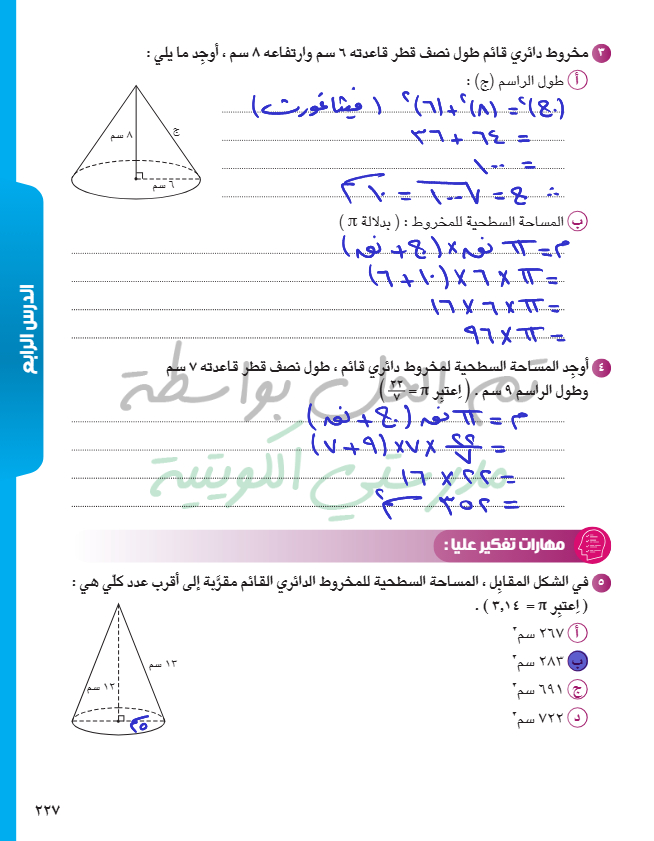 ٣ مخروط دائري قائم طول نصف قطر قاعدته ٦ سم وارتفاعه ٨ سم ، أوجِد ما يلي :
أ طول الراسم (ج) :
(ج)² = (٨)² + (٦)² (فيثاغورث)
= ٦٤ + ٣٦
= ١٠٠
∴ ج = √١٠٠ = ١٠ سم
ج
٨ سم
٦ سم
ب المساحة السطحية للمخروط : ( بدلالة π )
م = π نق × (ج + نق)
= π × ٦ × (١٠ + ٦)
= π × ٦ × ١٦
= π × ٩٦
الدرس الرابع
٤ أوجِد المساحة السطحية لمخروط دائري قائم ، طول نصف قطر قاعدته ٧ سم
وطول الراسم ٩ سم . ( اِعتبِر π = ٢٢/٧ )
م = π نق (ج + نق)
= ٢٢/٧ × ٧ × (٩ + ٧)
= ٢٢ × ١٦
= ٣٥٢ سم²
تم الحل بواسطة
مدرستي الكويتية
مهارات تفكير عليا :
٥ في الشكل المقابِل ، المساحة السطحية للمخروط الدائري القائم مقرَّبة إلى أقرب عدد كلّي هي :
( اِعتبِر π = ٣,١٤ ) .
أ ٢٦٧ سم²
ب ٢٨٣ سم²
ج ٦٩١ سم²
د ٧٢٢ سم²
١٣ سم
١٢ سم
٥ سم
٢٢٧